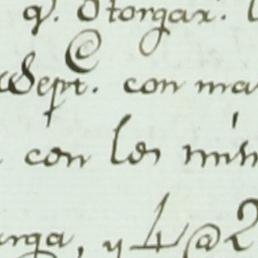 q. Otorgar.
Sept. con ma
con los mis
arga, y 4@2